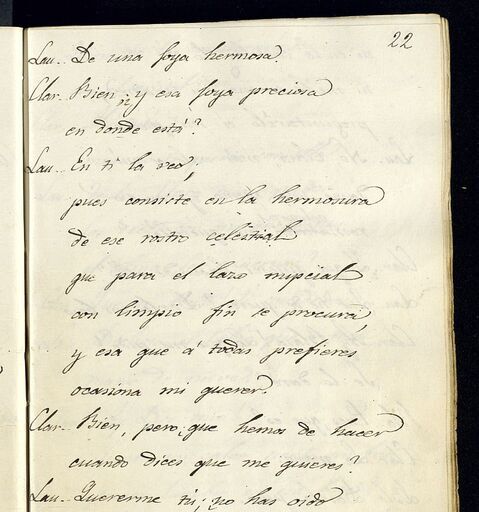 22
Lau. De una joya hermosa.
Clar. Bien; y esa joya preciosa
en donde está?
Lau. En ti la veo;
pues consiste en la hermosura
de ese rostro celestial
que para el lazo nupcial
con limpio fin se procura,
y esa que á todas prefieres
ocasiona mi querer.
Clar. Bien, pero, que hemos de hacer
cuando dices que me quieres?
Lau. Quererme tú; no has oido